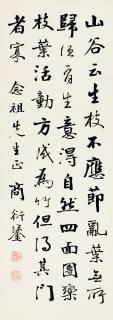 山谷云生枝不應節亂葉無所
歸須一一生意得自然四面團欒
枝葉活動方成為竹但得其門
者寡 念祖先生正 商衍鎏